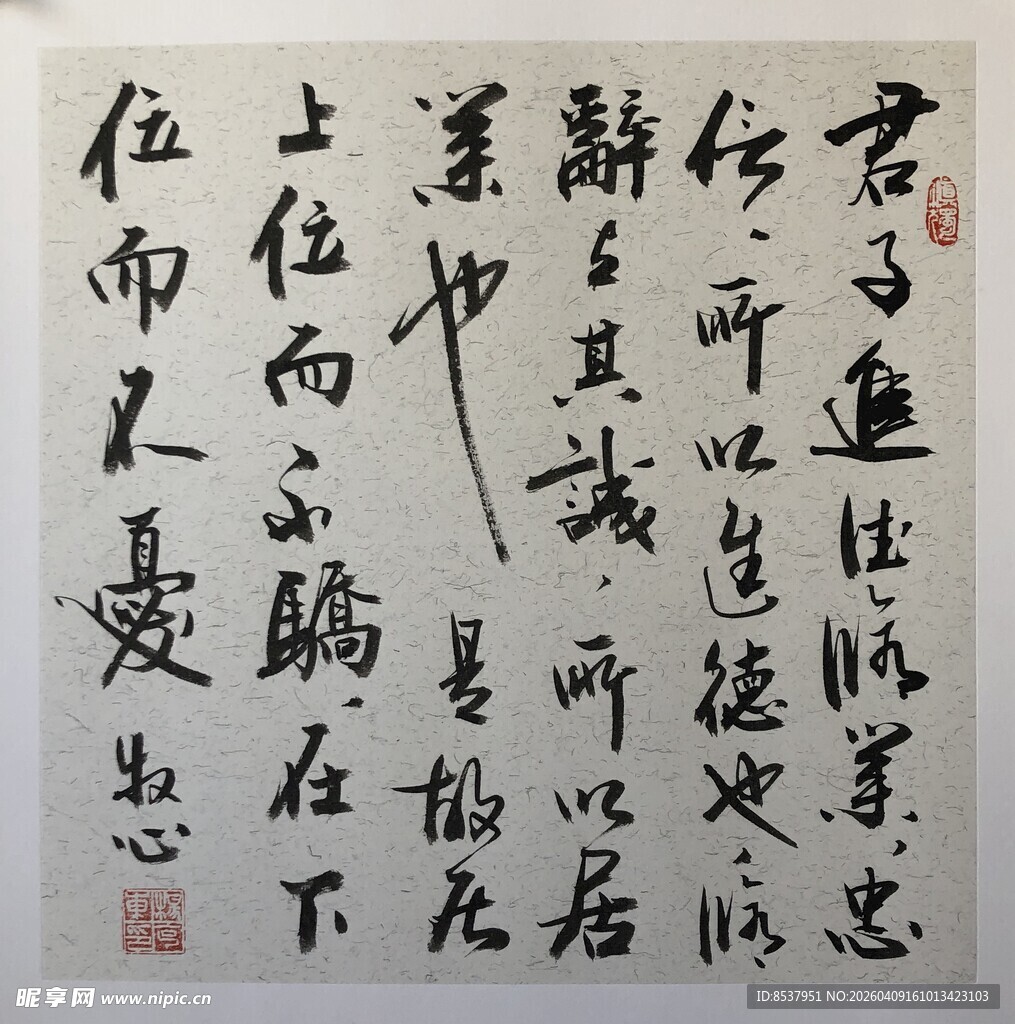 君子進德、脩業、忠
信、所以進德也、脩
辭立其誠、所以居
業也是故居
上位而不驕、在下
位而不憂
牧心
慎獨
昵享网 www.nipic.cn
ID:8537951 NO:20260409161013423103